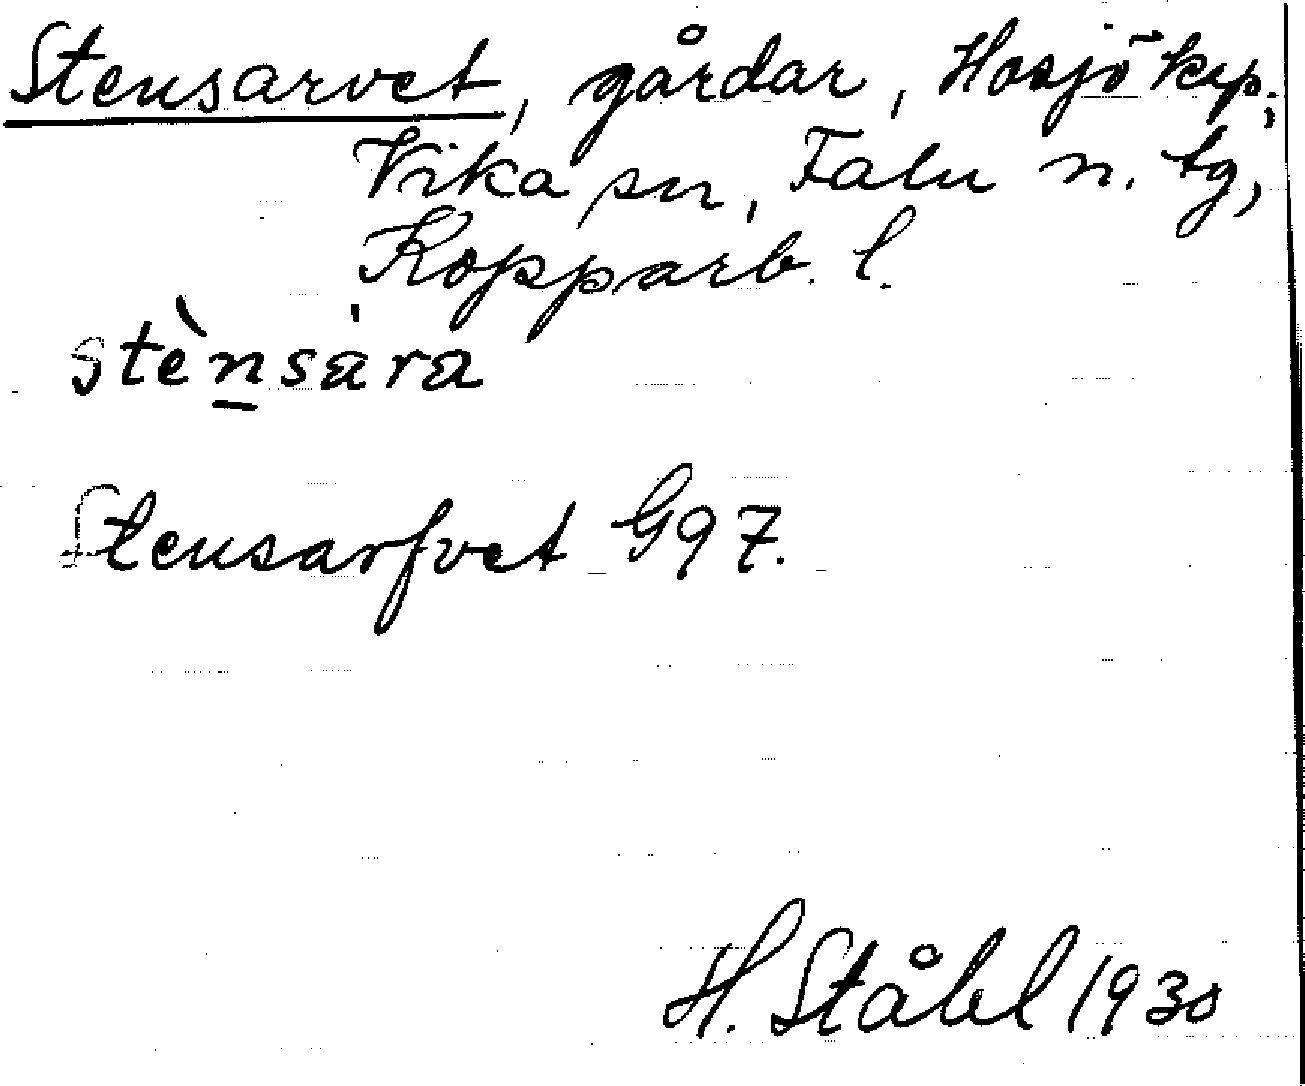 Stensarvet, gårdar, Hosjö kyp.;
Vika sn, Falu n. tg,
Kopparb. l.
stèn̠sȧra
Stensarfvet G97.
H. Ståhl 1930